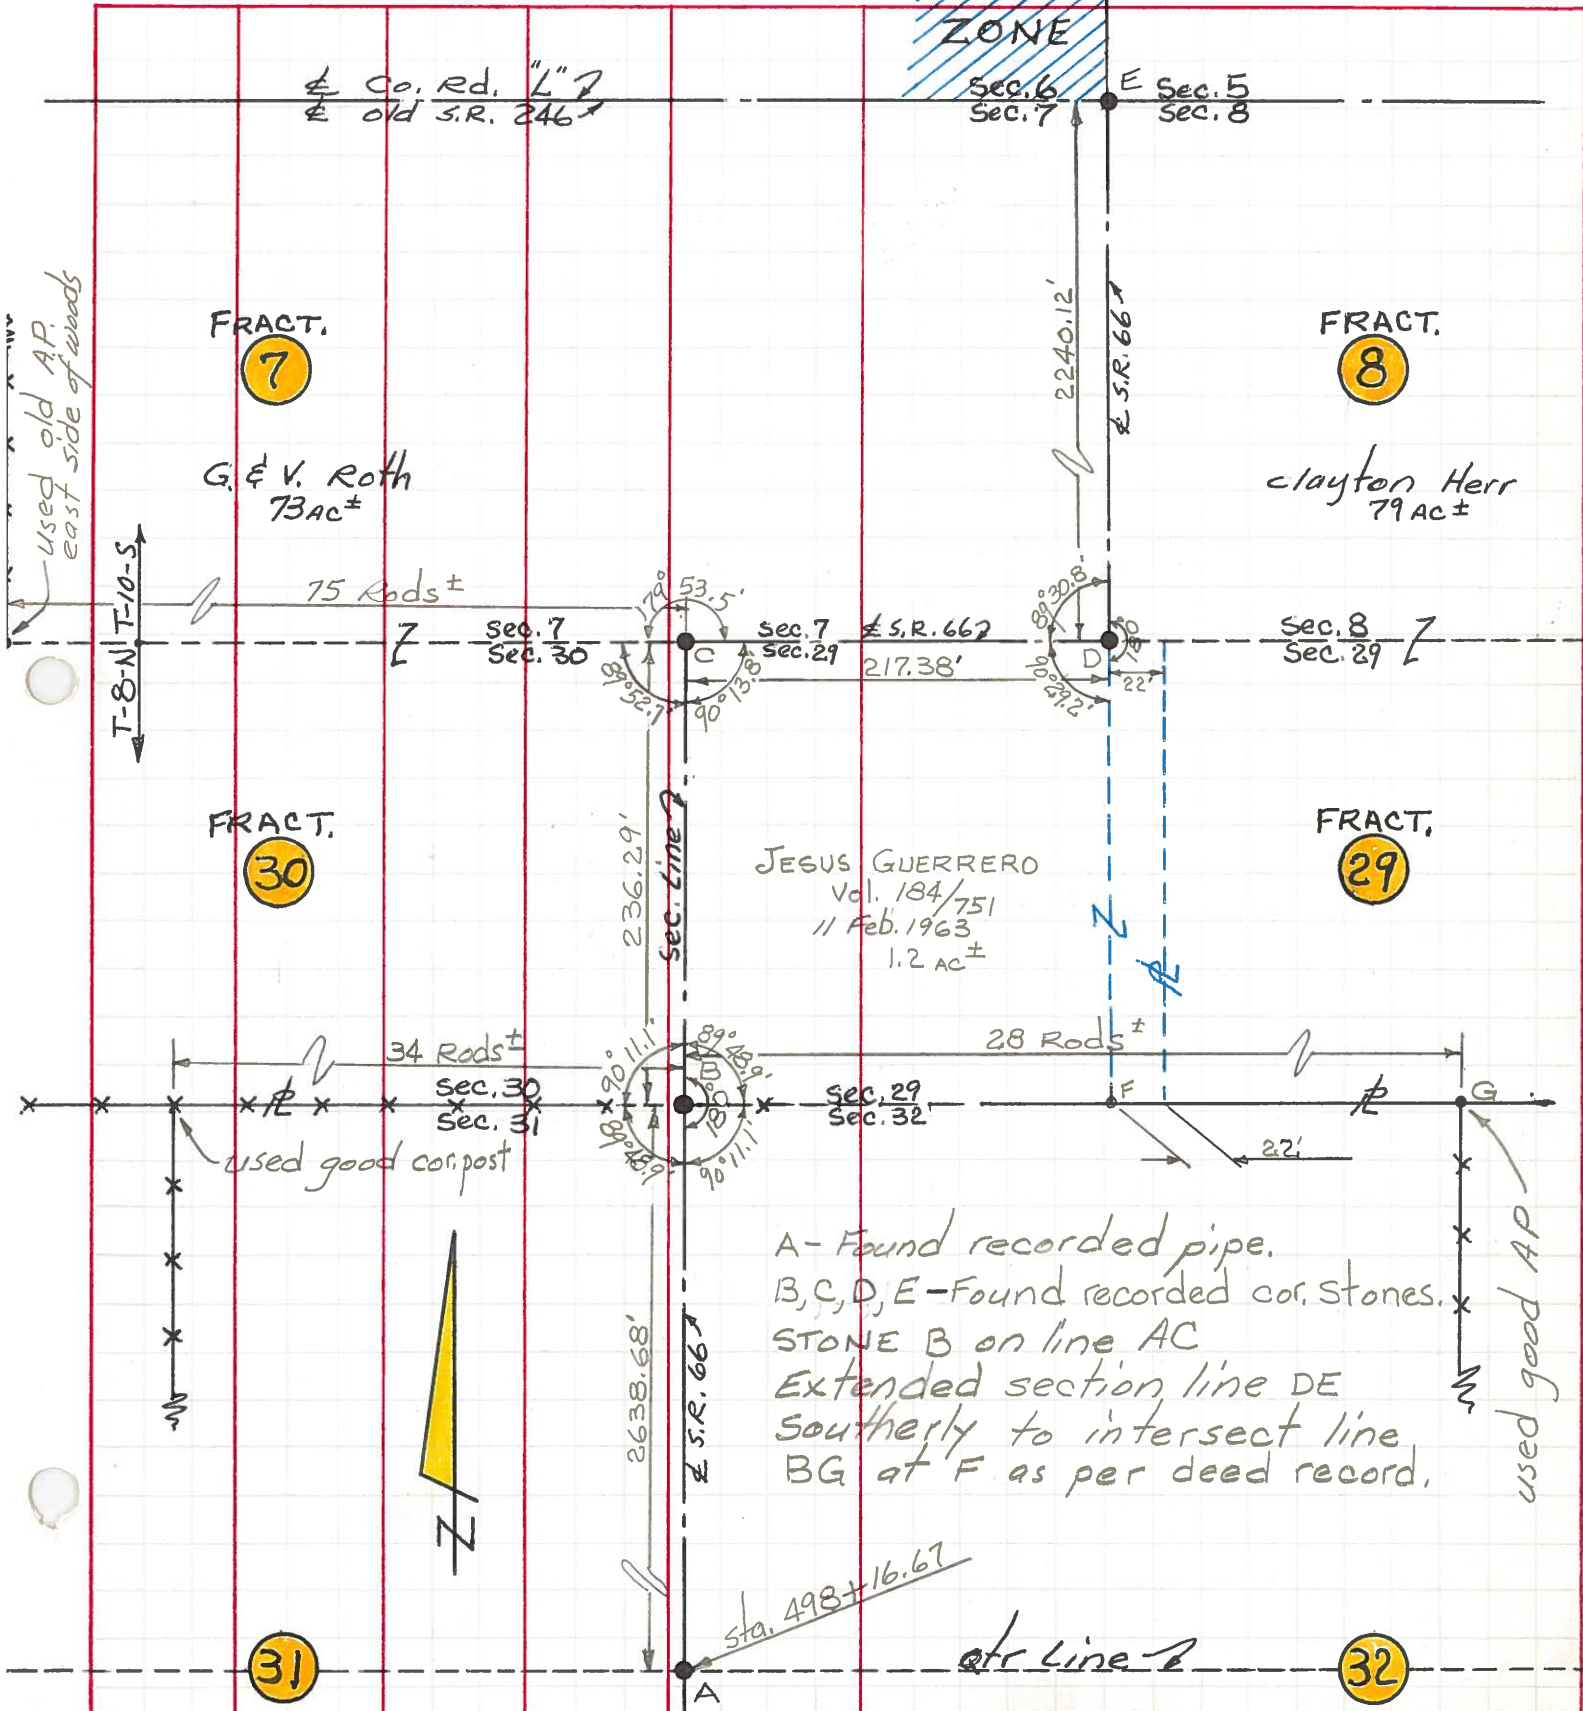 ZONE
℄ Co. Rd. "L"
℄ old S.R. 246
Sec. 6
Sec. 7
E
Sec. 5
Sec. 8
used old A.P.
east side of woods
FRACT.
7
G. & V. Roth
73 AC ±
2240.12'
℄ S.R. 66
FRACT.
8
Clayton Herr
79 AC ±
T-10-S
T-8-N
75 Rods ±
Sec. 7
Sec. 30
179° 53.5'
C
89° 52.7'
90° 13.8'
Sec. 7
Sec. 29
℄ S.R. 66
217.38'
89° 30.8'
D
180
90° 29.2'
22'
Sec. 8
Sec. 29
FRACT.
30
236.29'
Sec. Line
JESUS GUERRERO
Vol. 184/751
11 Feb. 1963
1.2 AC ±
FRACT.
29
℄
34 Rods ±
28 Rods ±
Sec. 30
Sec. 31
90° 11.1'
89° 48.9'
B
180
89° 48.9'
90° 11.1'
Sec. 29
Sec. 32
F
G
℄
℄
22'
used good cor. post
used good AP
A - Found recorded pipe.
B, C, D, E - Found recorded cor. Stones.
STONE B on line AC
Extended section line DE
Southerly to intersect line
BG at F as per deed record.
2638.68'
℄ S.R. 66
N
Sta. 498+16.67
A
31
qtr Line
32